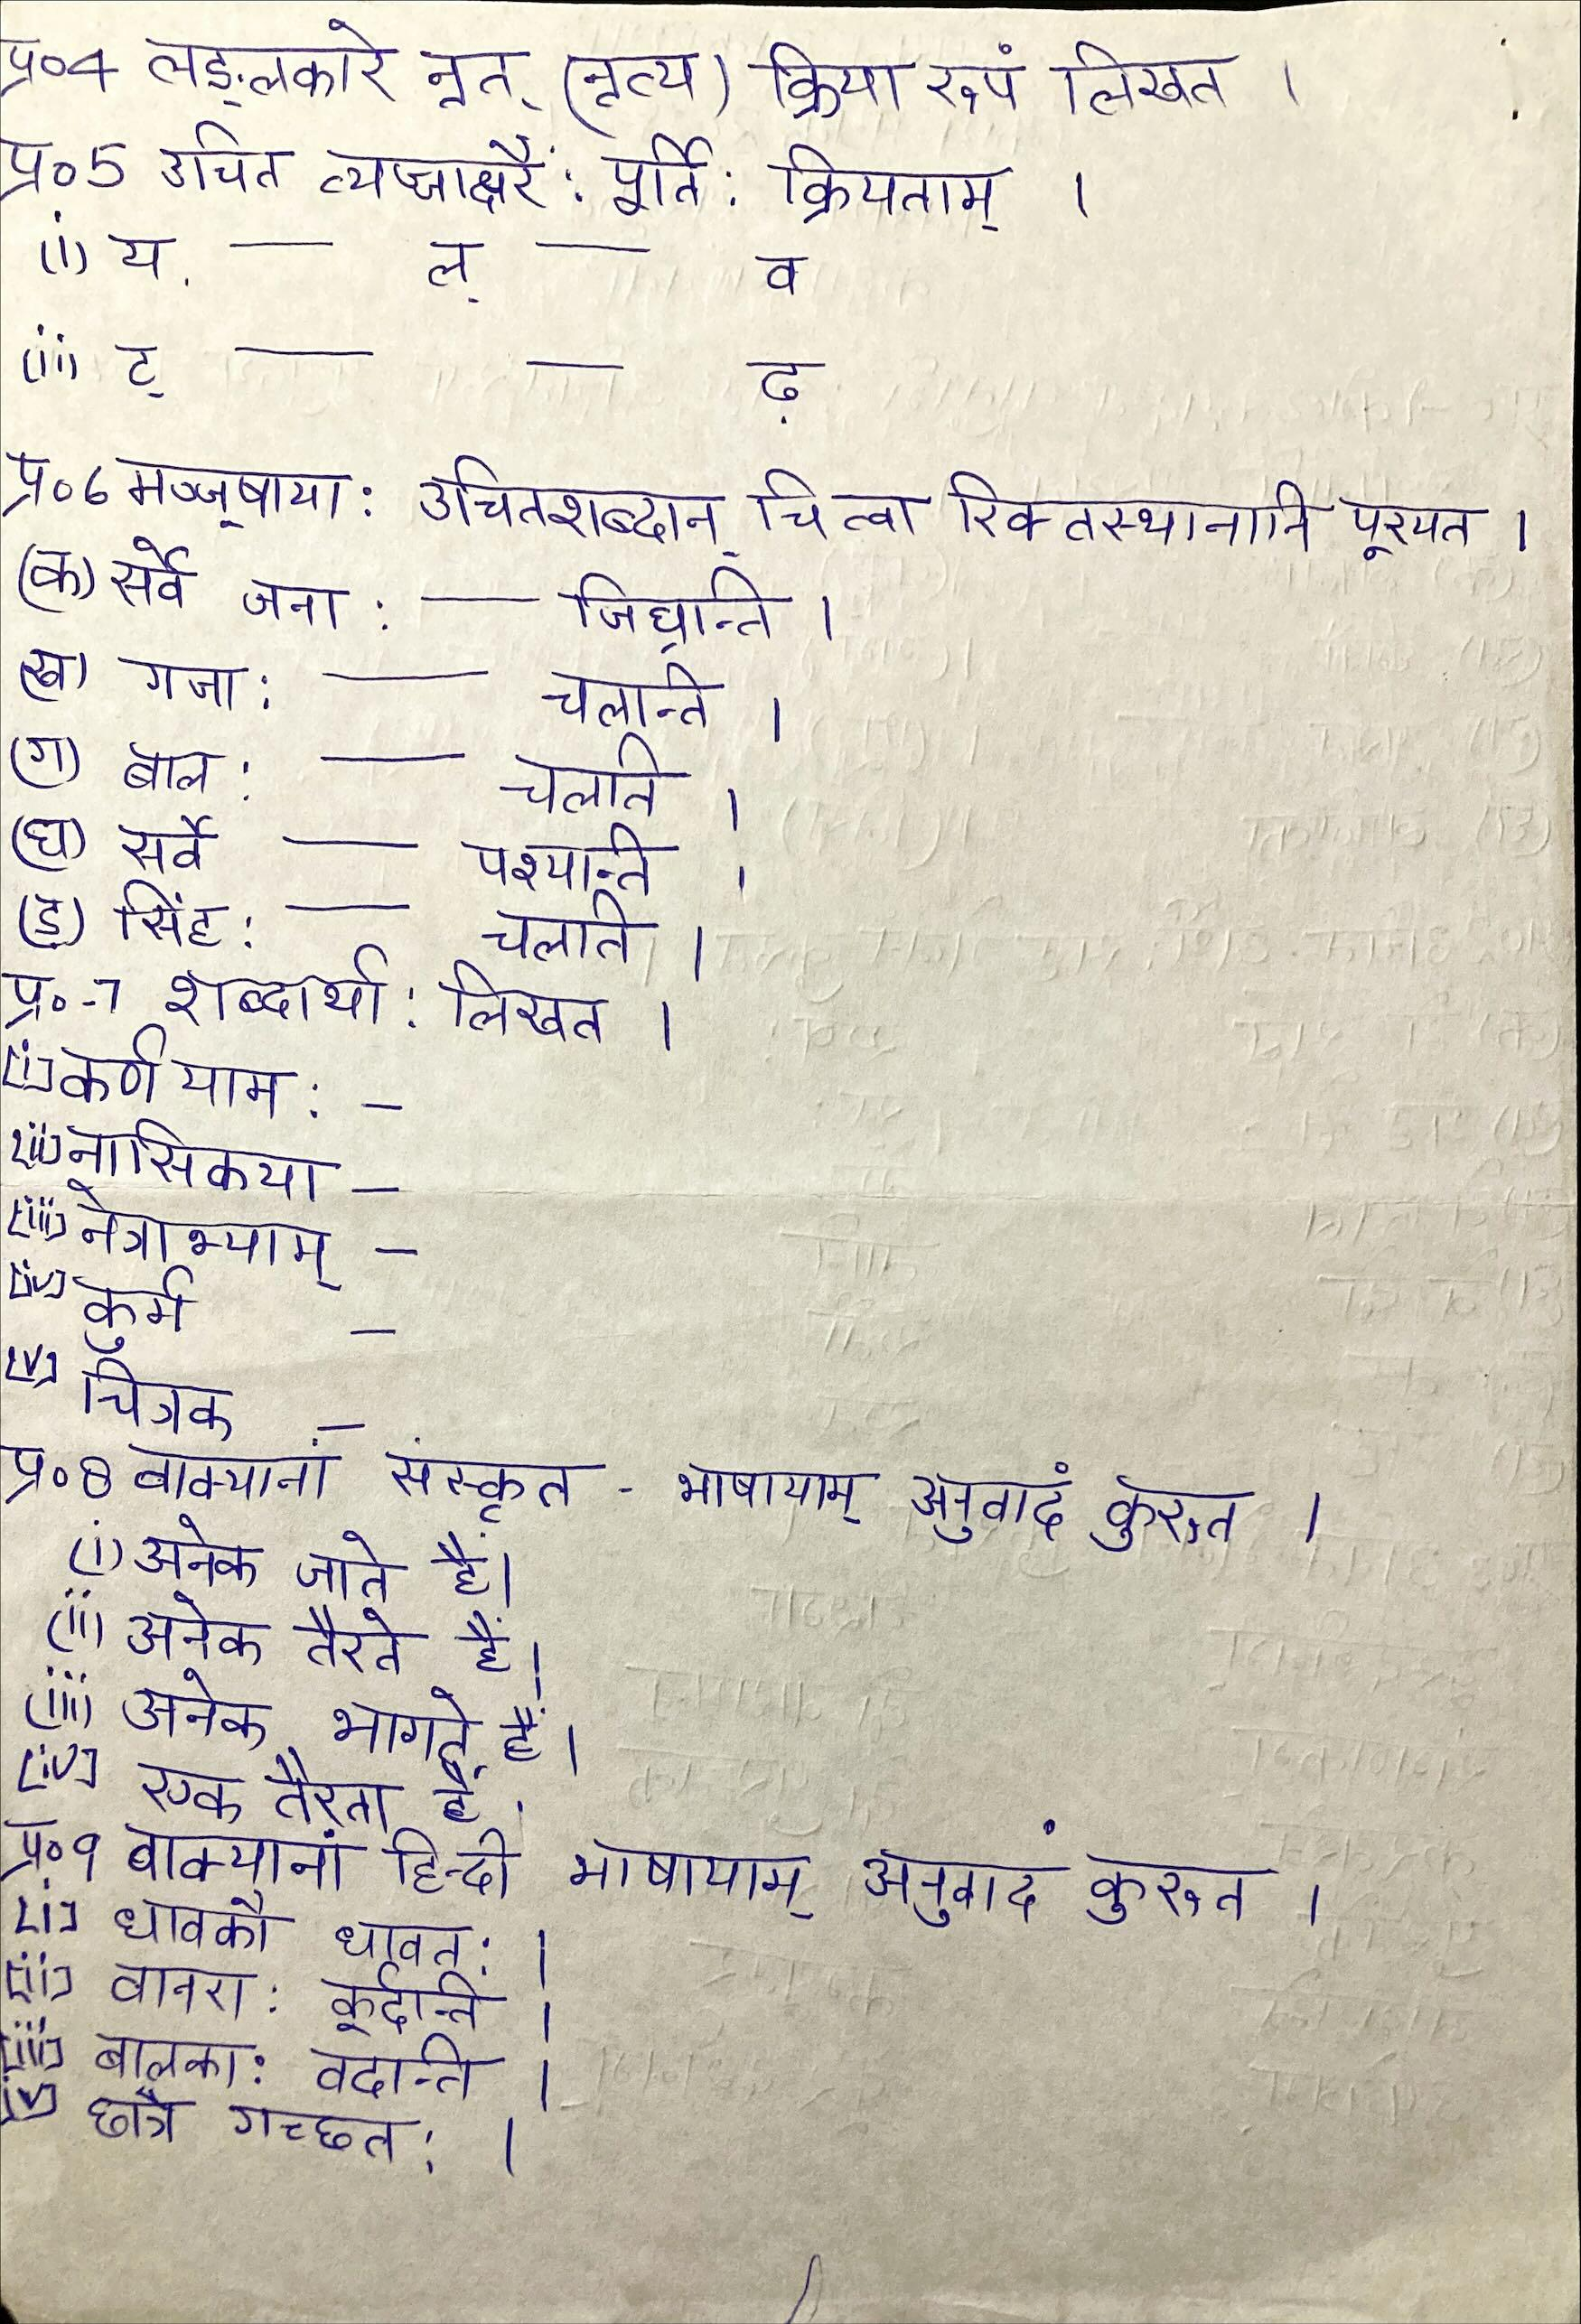 प्र०4 लङ्लकारे नृत् (नृत्य) क्रिया रूपं लिखत ।
प्र०5 उचित व्यञ्जाक्षरैः पूर्तिः क्रियताम् ।
(i) य. — ल् — व
(ii) ट् — — ढ़
प्र०6 मञ्जूषायाः उचितशब्दान् चित्वा रिक्तस्थानानि पूरयत ।
(क) सर्वे जनाः — जिघ्रन्ति ।
(ख) गजाः — चलन्ति ।
(ग) बालः — चलति ।
(घ) सर्वे — पश्यन्ति ।
(ङ) सिंहः — चलति ।
प्र०-7 शब्दार्थाः लिखत ।
[i] कर्णयामः –
[ii] नासिकया –
[iii] नेत्राभ्याम् –
[iv] कुर्म –
[v] चित्रक –
प्र०8 वाक्यानां संस्कृत - भाषायाम् अनुवादं कुरुत ।
(i) अनेक जाते हैं।
(ii) अनेक तैरते हैं।
(iii) अनेक भागते हैं।
[iv] एक तैरता है.
प्र०9 वाक्यानां हिन्दी भाषायाम् अनुवादं कुरुत ।
[i] धावकौ धावतः ।
[ii] वानराः कूर्दन्ति ।
[iii] बालकाः वदन्ति ।
[iv] छात्रै गच्छतः ।